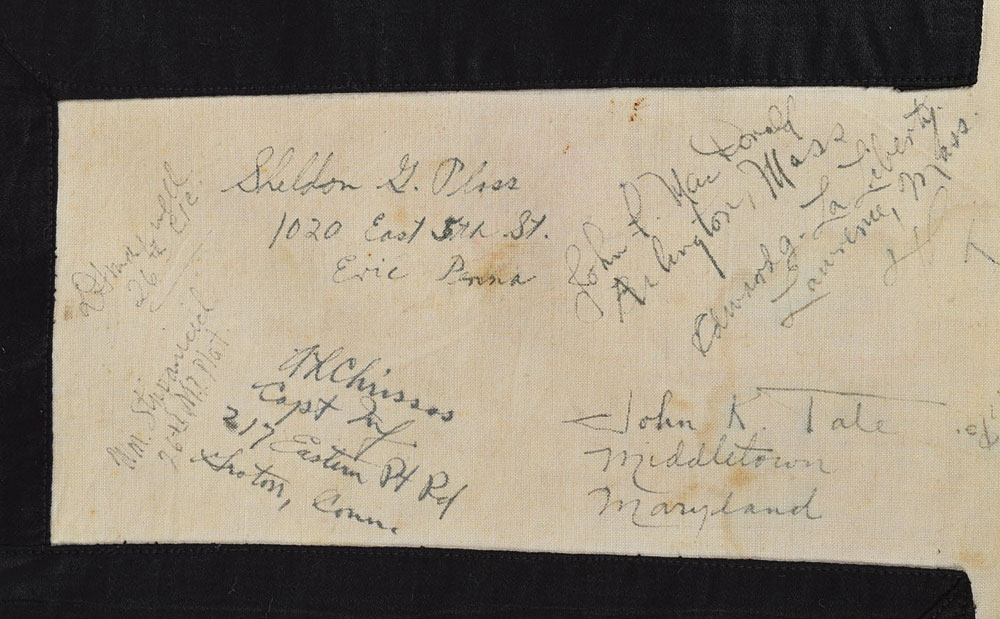 Sheldon G. Ploss
1020 East 5th St.
Erie Penna
John F. Mac Donald
Arlington, Mass
Edward J. La Liberty.
Lawrence, Mass.
26th
Wm.
26th Plat.
Chrissos
Capt Inf
217 Eastern Pt Rd
Groton, Conn.
John K. Tate
Middletown
Maryland